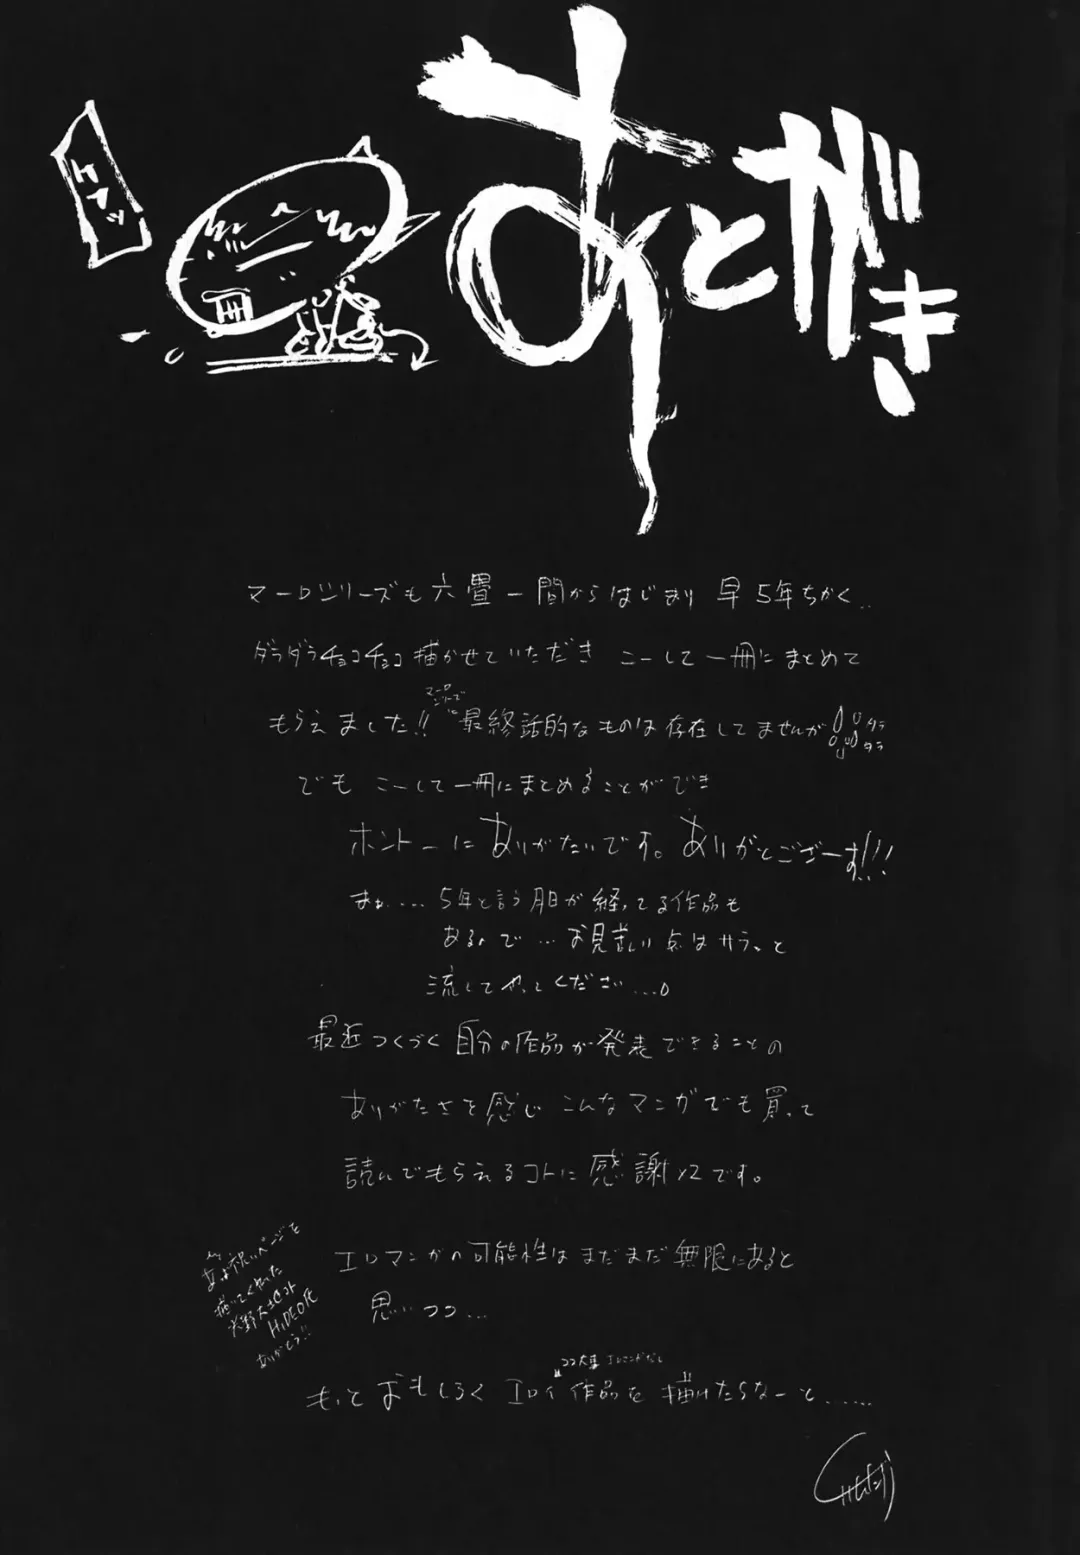 あとがき
マーロシリーズも六畳一間からはじまり 早5年ちかく..
ダラダラチョコチョコ描かせていただき こーして一冊にまとめて
もらえました!! 最終話的なものは存在してませんが
マーロシリーズに
ダラダラ
でも こーして一冊にまとめることができ
ホントーにありがたいです。ありがとございーす!!!
まぁ.... 5年と言う月日が経ってる作品も
あるので... お見苦しい点はサラっと
流してやってください...。
最近つくづく 自分の作品が発表できることの
ありがたさを感じ こんなマンガでも買って
読んでもらえるコトに感謝×2です。
エロマンガの可能性はまだまだ無限にあると
思いつつ...
ココ大事 エロマンガだし
もっとおもしろくエロイ作品を描けたらなーと......
お祝いページを
描いてくれた
HiDEO氏
ありがとう!!